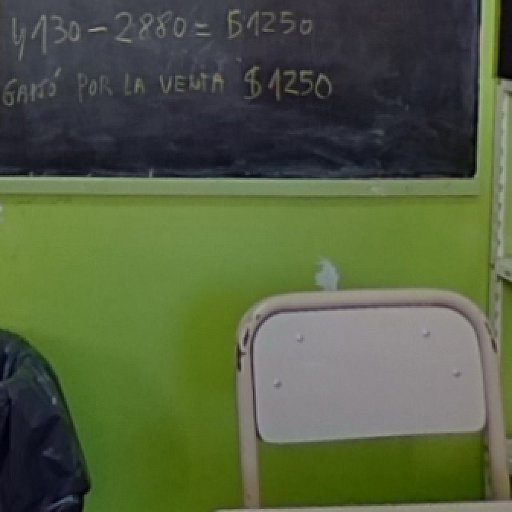 4130-2880= $1250
GANÓ POR LA VENTA $1250